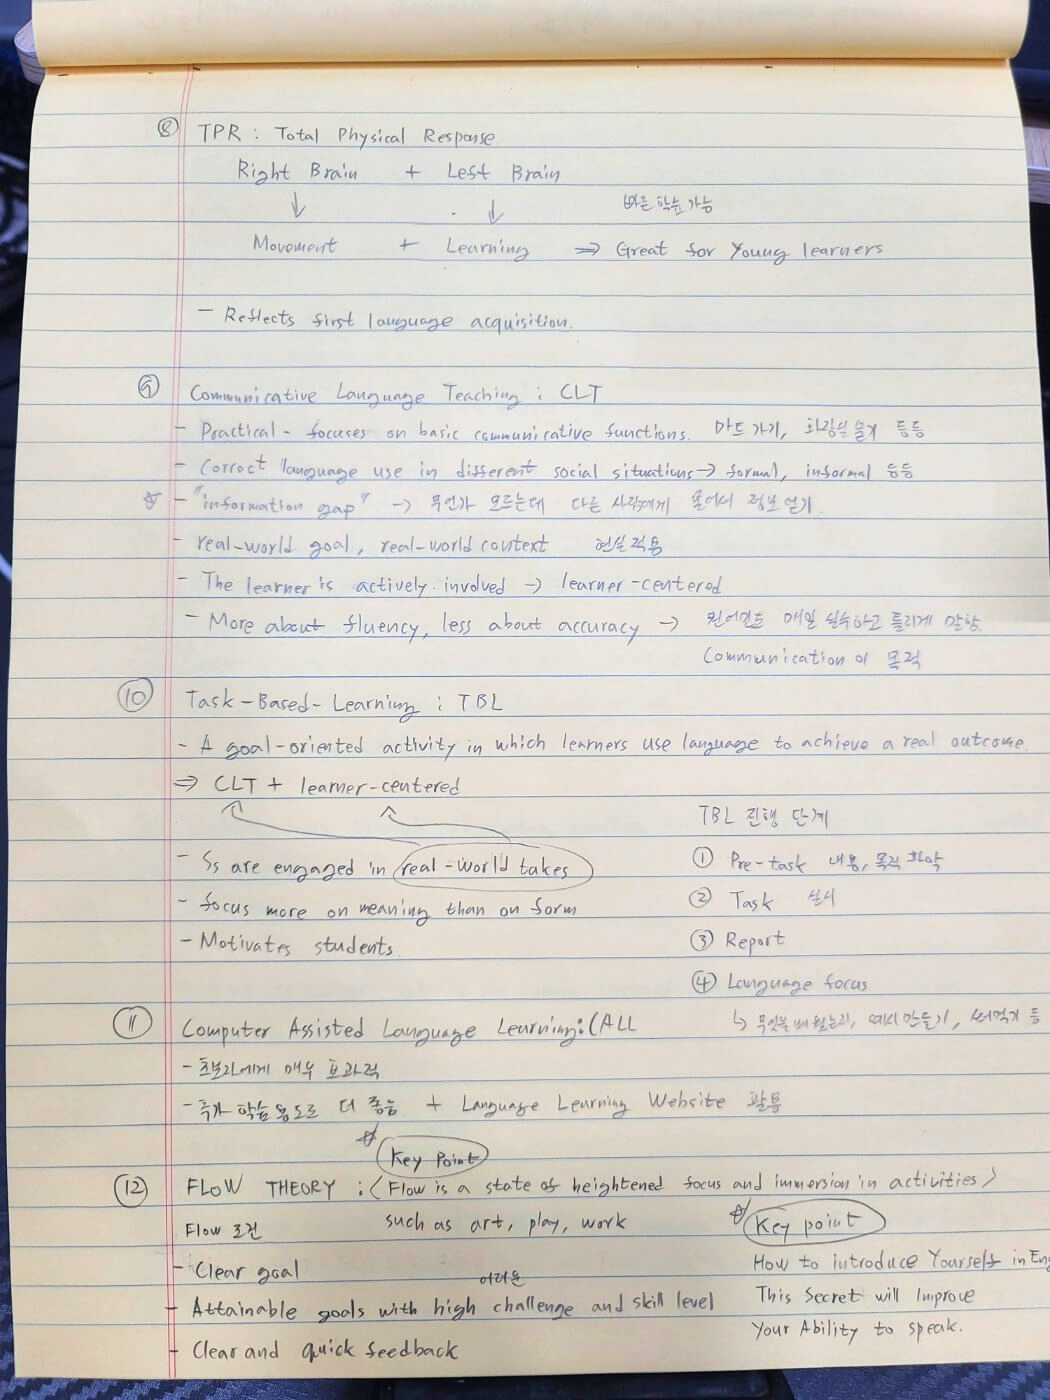 ⑧ TPR : Total Physical Response
Right Brain + Left Brain
↓ ↓ 빠른 학습 가능
Movement + Learning ⇒ Great for Young learners
- Reflects first language acquisition.
⑨ Communicative Language Teaching : CLT
- Practical - focuses on basic communicative functions. 마트 가기, 화장실 등등
- Correct language use in different social situations → formal, informal 등등
☆ - "information gap" → 무언가 모르는데 다른 사람에게 물어서 정보 얻기.
- real-world goal, real-world context 현실적용
- The learner is actively involved → learner-centered
- More about fluency, less about accuracy → 원어민도 매일 실수하고 틀리게 말함.
Communication이 목적
⑩ Task-Based-Learning : TBL
- A goal-oriented activity in which learners use language to achieve a real outcome.
⇒ CLT + learner-centered
TBL 진행 단계
- Ss are engaged in real-world takes ① Pre-task 내용, 목적 파악
- focus more on meaning than on form ② Task 실시
- Motivates students. ③ Report
④ Language focus
⑪ Computer Assisted Language Learning: CALL ↳ 무엇을 배웠는지, 예시 만들기, 써먹기 등
- 초보자에게 매우 효과적
- 추가 학습 용도로 더 좋음 + Language Learning Website 활용
☆ Key Point
⑫ FLOW THEORY : < Flow is a state of heightened focus and immersion in activities >
Flow 조건 such as art, play, work ☆ Key point
- Clear goal How to introduce Yourself in Eng
어려운
- Attainable goals with high challenge and skill level This Secret will Improve
Your Ability to speak.
- Clear and quick feedback